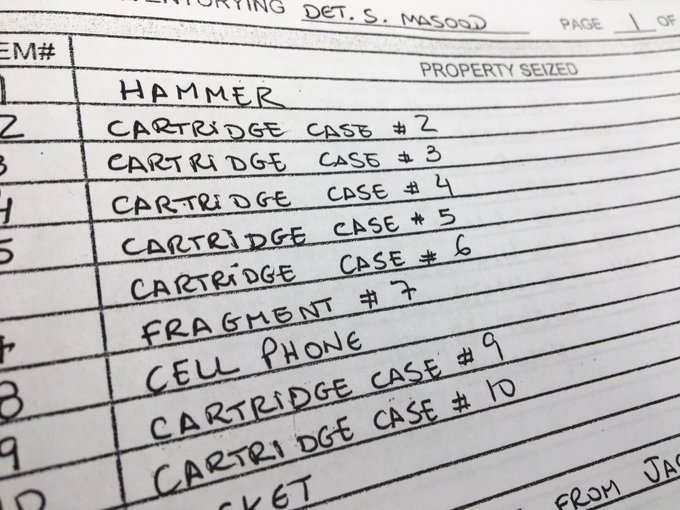 INVENTORYING DET. S. MASOOD PAGE 1 OF
EM# PROPERTY SEIZED
1 HAMMER
2 CARTRIDGE CASE # 2
3 CARTRIDGE CASE # 3
4 CARTRIDGE CASE # 4
5 CARTRIDGE CASE # 5
CARTRIDGE CASE # 6
FRAGMENT # 7
8 CELL PHONE
9 CARTRIDGE CASE # 9
10 CARTRIDGE CASE # 10
CKET FROM JAC